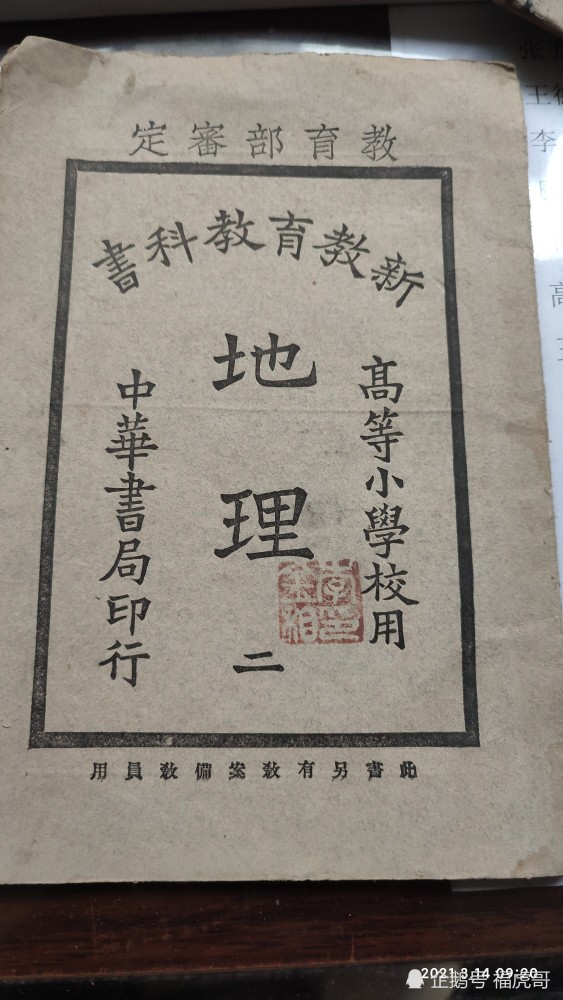 教育部審定
新教育教科書
高等小學校用
地理
二
中華書局印行
此書另有教案備教員用
張
王
李
高
2021.3.14 09:20
企鹅号 福虎哥